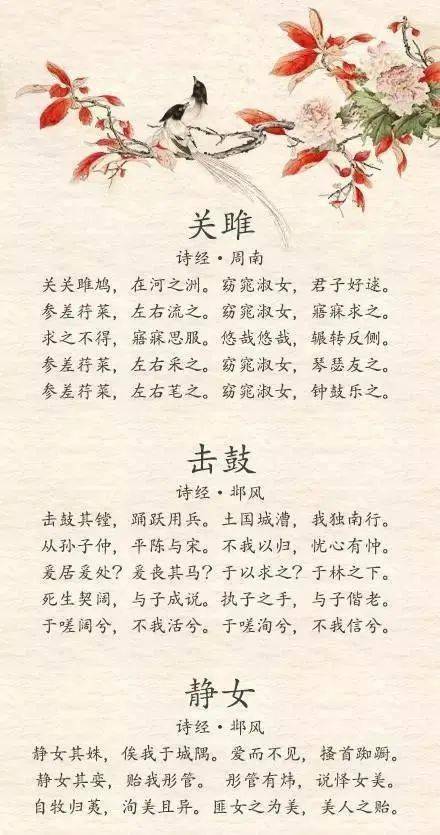 关雎
诗经·周南
关关雎鸠，在河之洲。窈窕淑女，君子好逑。
参差荇菜，左右流之。窈窕淑女，寤寐求之。
求之不得，寤寐思服。悠哉悠哉，辗转反侧。
参差荇菜，左右采之。窈窕淑女，琴瑟友之。
参差荇菜，左右芼之。窈窕淑女，钟鼓乐之。
击鼓
诗经·邶风
击鼓其镗，踊跃用兵。土国城漕，我独南行。
从孙子仲，平陈与宋。不我以归，忧心有忡。
爰居爰处？爰丧其马？于以求之？于林之下。
死生契阔，与子成说。执子之手，与子偕老。
于嗟阔兮，不我活兮。于嗟洵兮，不我信兮。
静女
诗经·邶风
静女其姝，俟我于城隅。爱而不见，搔首踟蹰。
静女其娈，贻我彤管。彤管有炜，说怿女美。
自牧归荑，洵美且异。匪女之为美，美人之贻。